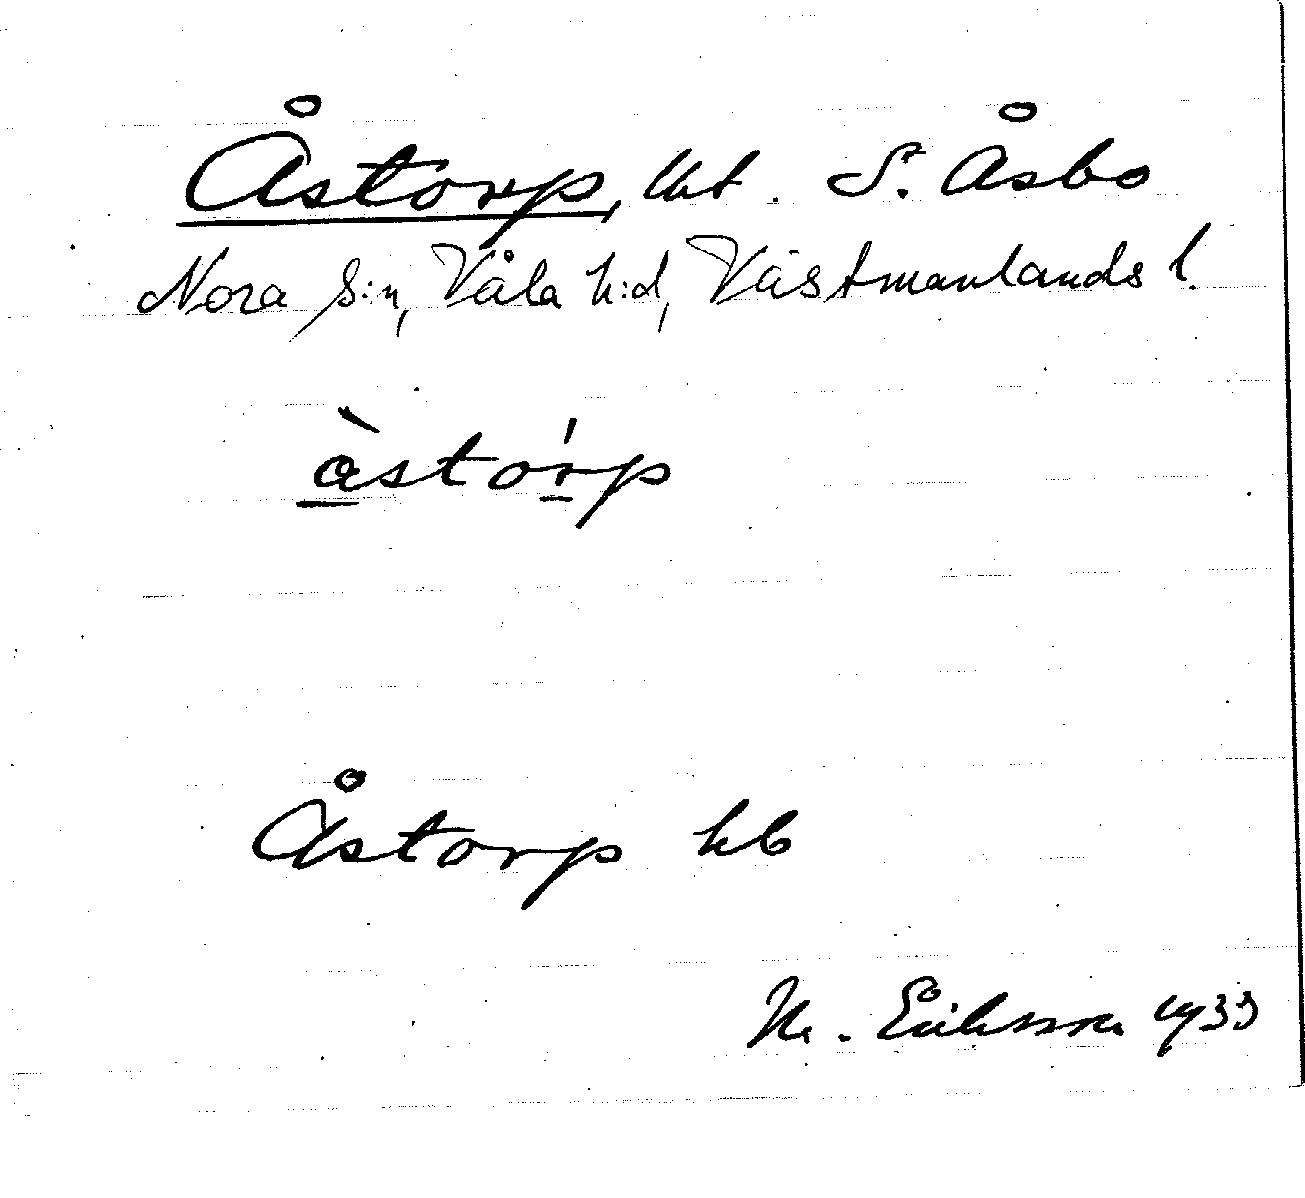 Åstorp, lht. S. Åsbo
Nora s:n, Våla h:d, Västmanlands l.
àstórp
Åstorp hb
M. Eriksson 1933